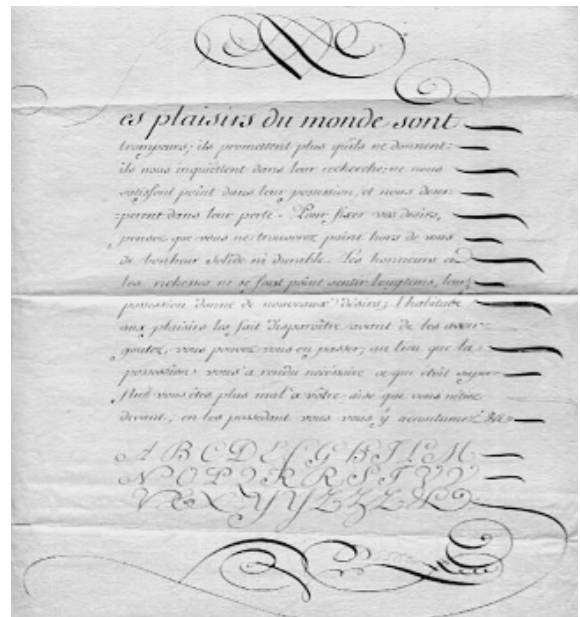 es plaisirs du monde sont
trompeurs; ils promettent plus qu'ils ne donnent:
ils nous inquiétent dans leur recherche: ne nous
satisfont point dans leur possession, et nous deses-
-perent dans leur perte. Pour fixer vos desirs,
pensez que vous ne trouverez point hors de vous
de bonheur solide ni durable. Les honneurs et
les richesses ne se font point sentir longtems, leur
possession donne de nouveaux desirs; l'habitude
aux plaisirs les fait disparoître avant de les avoir
goutez, vous pouvez vous en passer; au lieu que la
possession vous a rendu nécessaire ce qui étoit super-
flu vous êtes plus mal à vôtre aise que vous n'étiez
devant, en les possedant vous vous y accoutumez &c
A B C D E F G H I L M
N O P Q R R S T V V
V X X Y Y Z Z